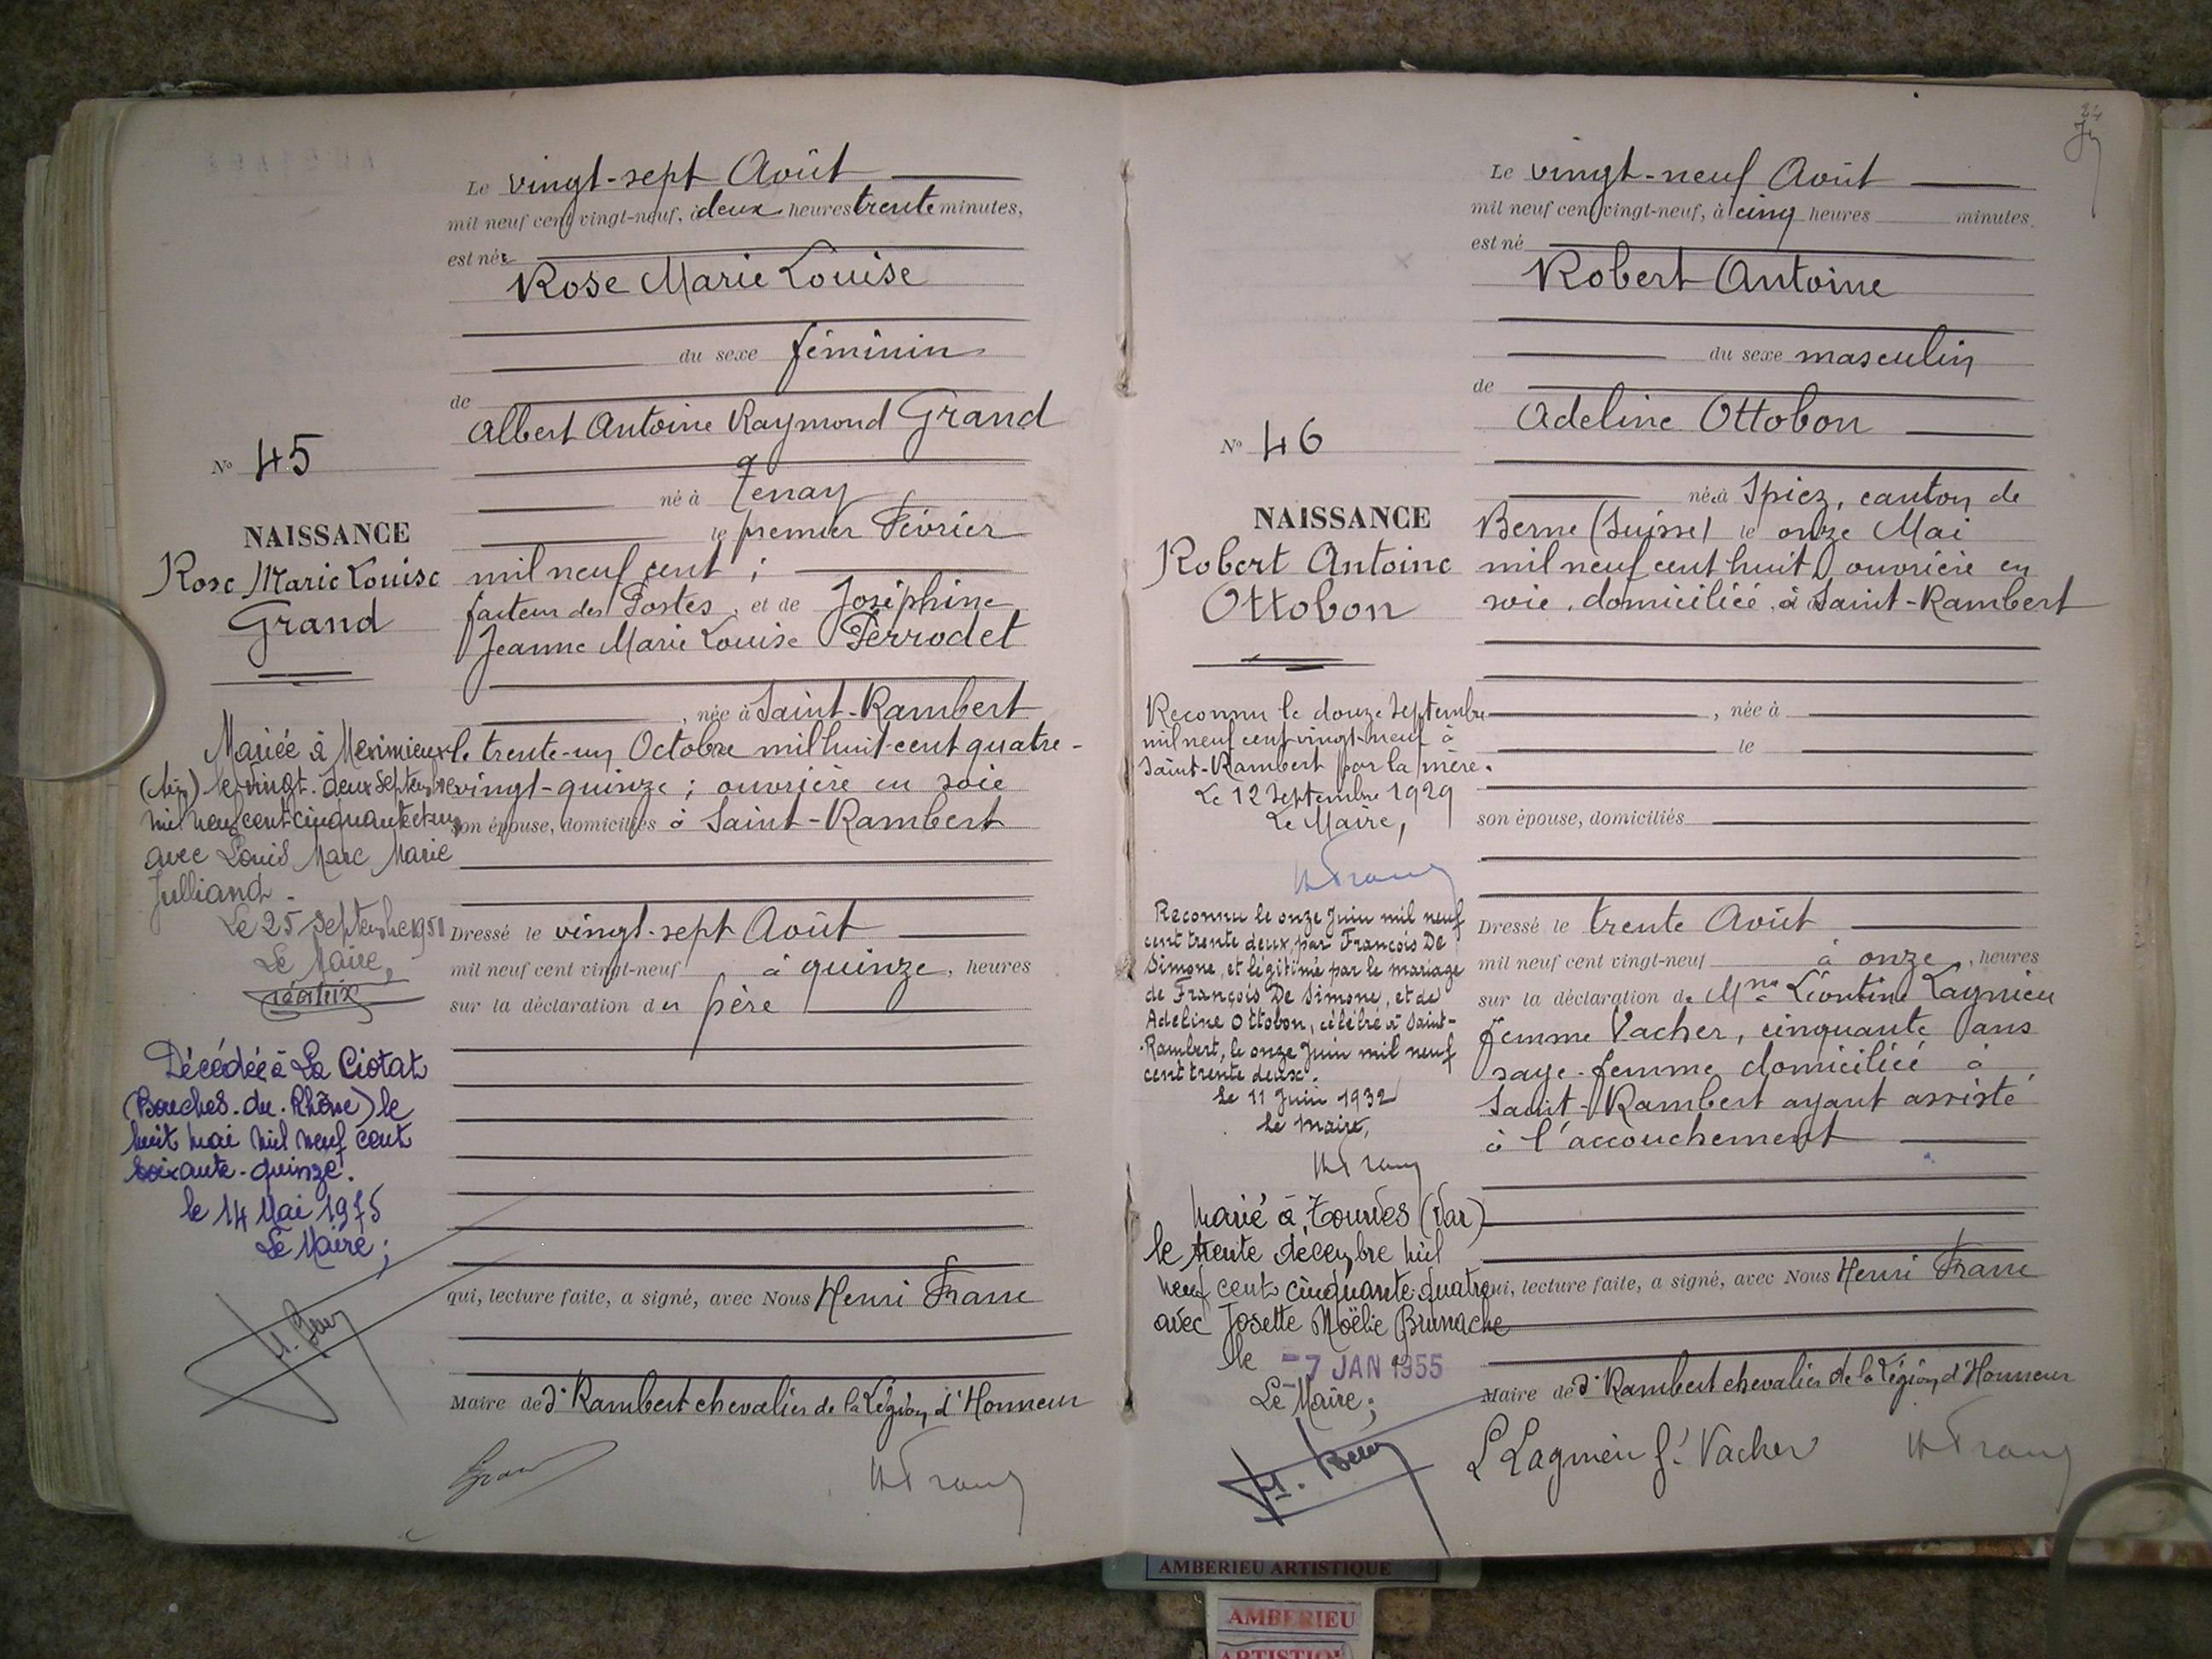 Le vingt-sept Août
mil neuf cent vingt-neuf, à deux heures trente minutes,
est née
Rose Marie Louise
du sexe féminin
de
Albert Antoine Raymond Grand
né à Tenay
le premier Février
mil neuf cent ;
facteur des Postes, et de Joséphine
Jeanne Marie Louise Perrodet
, née à Saint-Rambert
le trente-un Octobre mil huit-cent quatre-
vingt-quinze ; ouvrière en soie
son épouse, domiciliés à Saint-Rambert
Dressé le vingt-sept Août
mil neuf cent vingt-neuf à quinze, heures
sur la déclaration du père
qui, lecture faite, a signé, avec Nous Henri Franc
Maire de St Rambert chevalier de la Légion d'Honneur
N° 45
NAISSANCE
Rose Marie Louise
Grand
Mariée à Meximieux
(Ain) le vingt-deux Septembre
mil neuf cent cinquante et un
avec Louis Marc Marie
Julliand -
Le 25 Septembre 1951
Le Maire,
Décédée à La Ciotat
(Bouches-du-Rhône) le
huit mai mil neuf cent
soixante-quinze.
le 14 Mai 1975
Le Maire ;
24
Le vingt-neuf Août
mil neuf cent vingt-neuf, à cinq heures minutes
est né
Robert Antoine
du sexe masculin
de
Adeline Ottobon
née à Spiez, canton de
Berne (Suisse) le onze Mai
mil neuf cent huit, ouvrière en
soie, domiciliée à Saint-Rambert
, née à
le
son épouse, domiciliés
Dressé le trente Août
mil neuf cent vingt-neuf à onze, heures
sur la déclaration de Mme Léontine Lagnieu
femme Vacher, cinquante ans
sage-femme domiciliée à
Saint-Rambert ayant assisté
à l'accouchement
qui, lecture faite, a signé, avec Nous Henri Franc
Maire de St Rambert chevalier de la Légion d'Honneur
L Lagnieu f. Vacher
N° 46
NAISSANCE
Robert Antoine
Ottobon
Reconnu le douze Septembre
mil neuf cent vingt-neuf à
Saint-Rambert par la mère.
Le 12 Septembre 1929
Le Maire,
Reconnu le onze Juin mil neuf
cent trente deux, par François De
Simone, et légitimé par le mariage
de François De Simone, et de
Adeline Ottobon, célébré à Saint-
Rambert, le onze Juin mil neuf
cent trente deux.
Le 11 Juin 1932
Le Maire,
Marié à Tourves (Var)
le trente décembre mil
neuf cent cinquante-quatre
avec Josette Noëlie Brunache
le -7 JAN 1955
Le Maire ;
AMBERIEU ARTISTIQUE
AMBERIEU